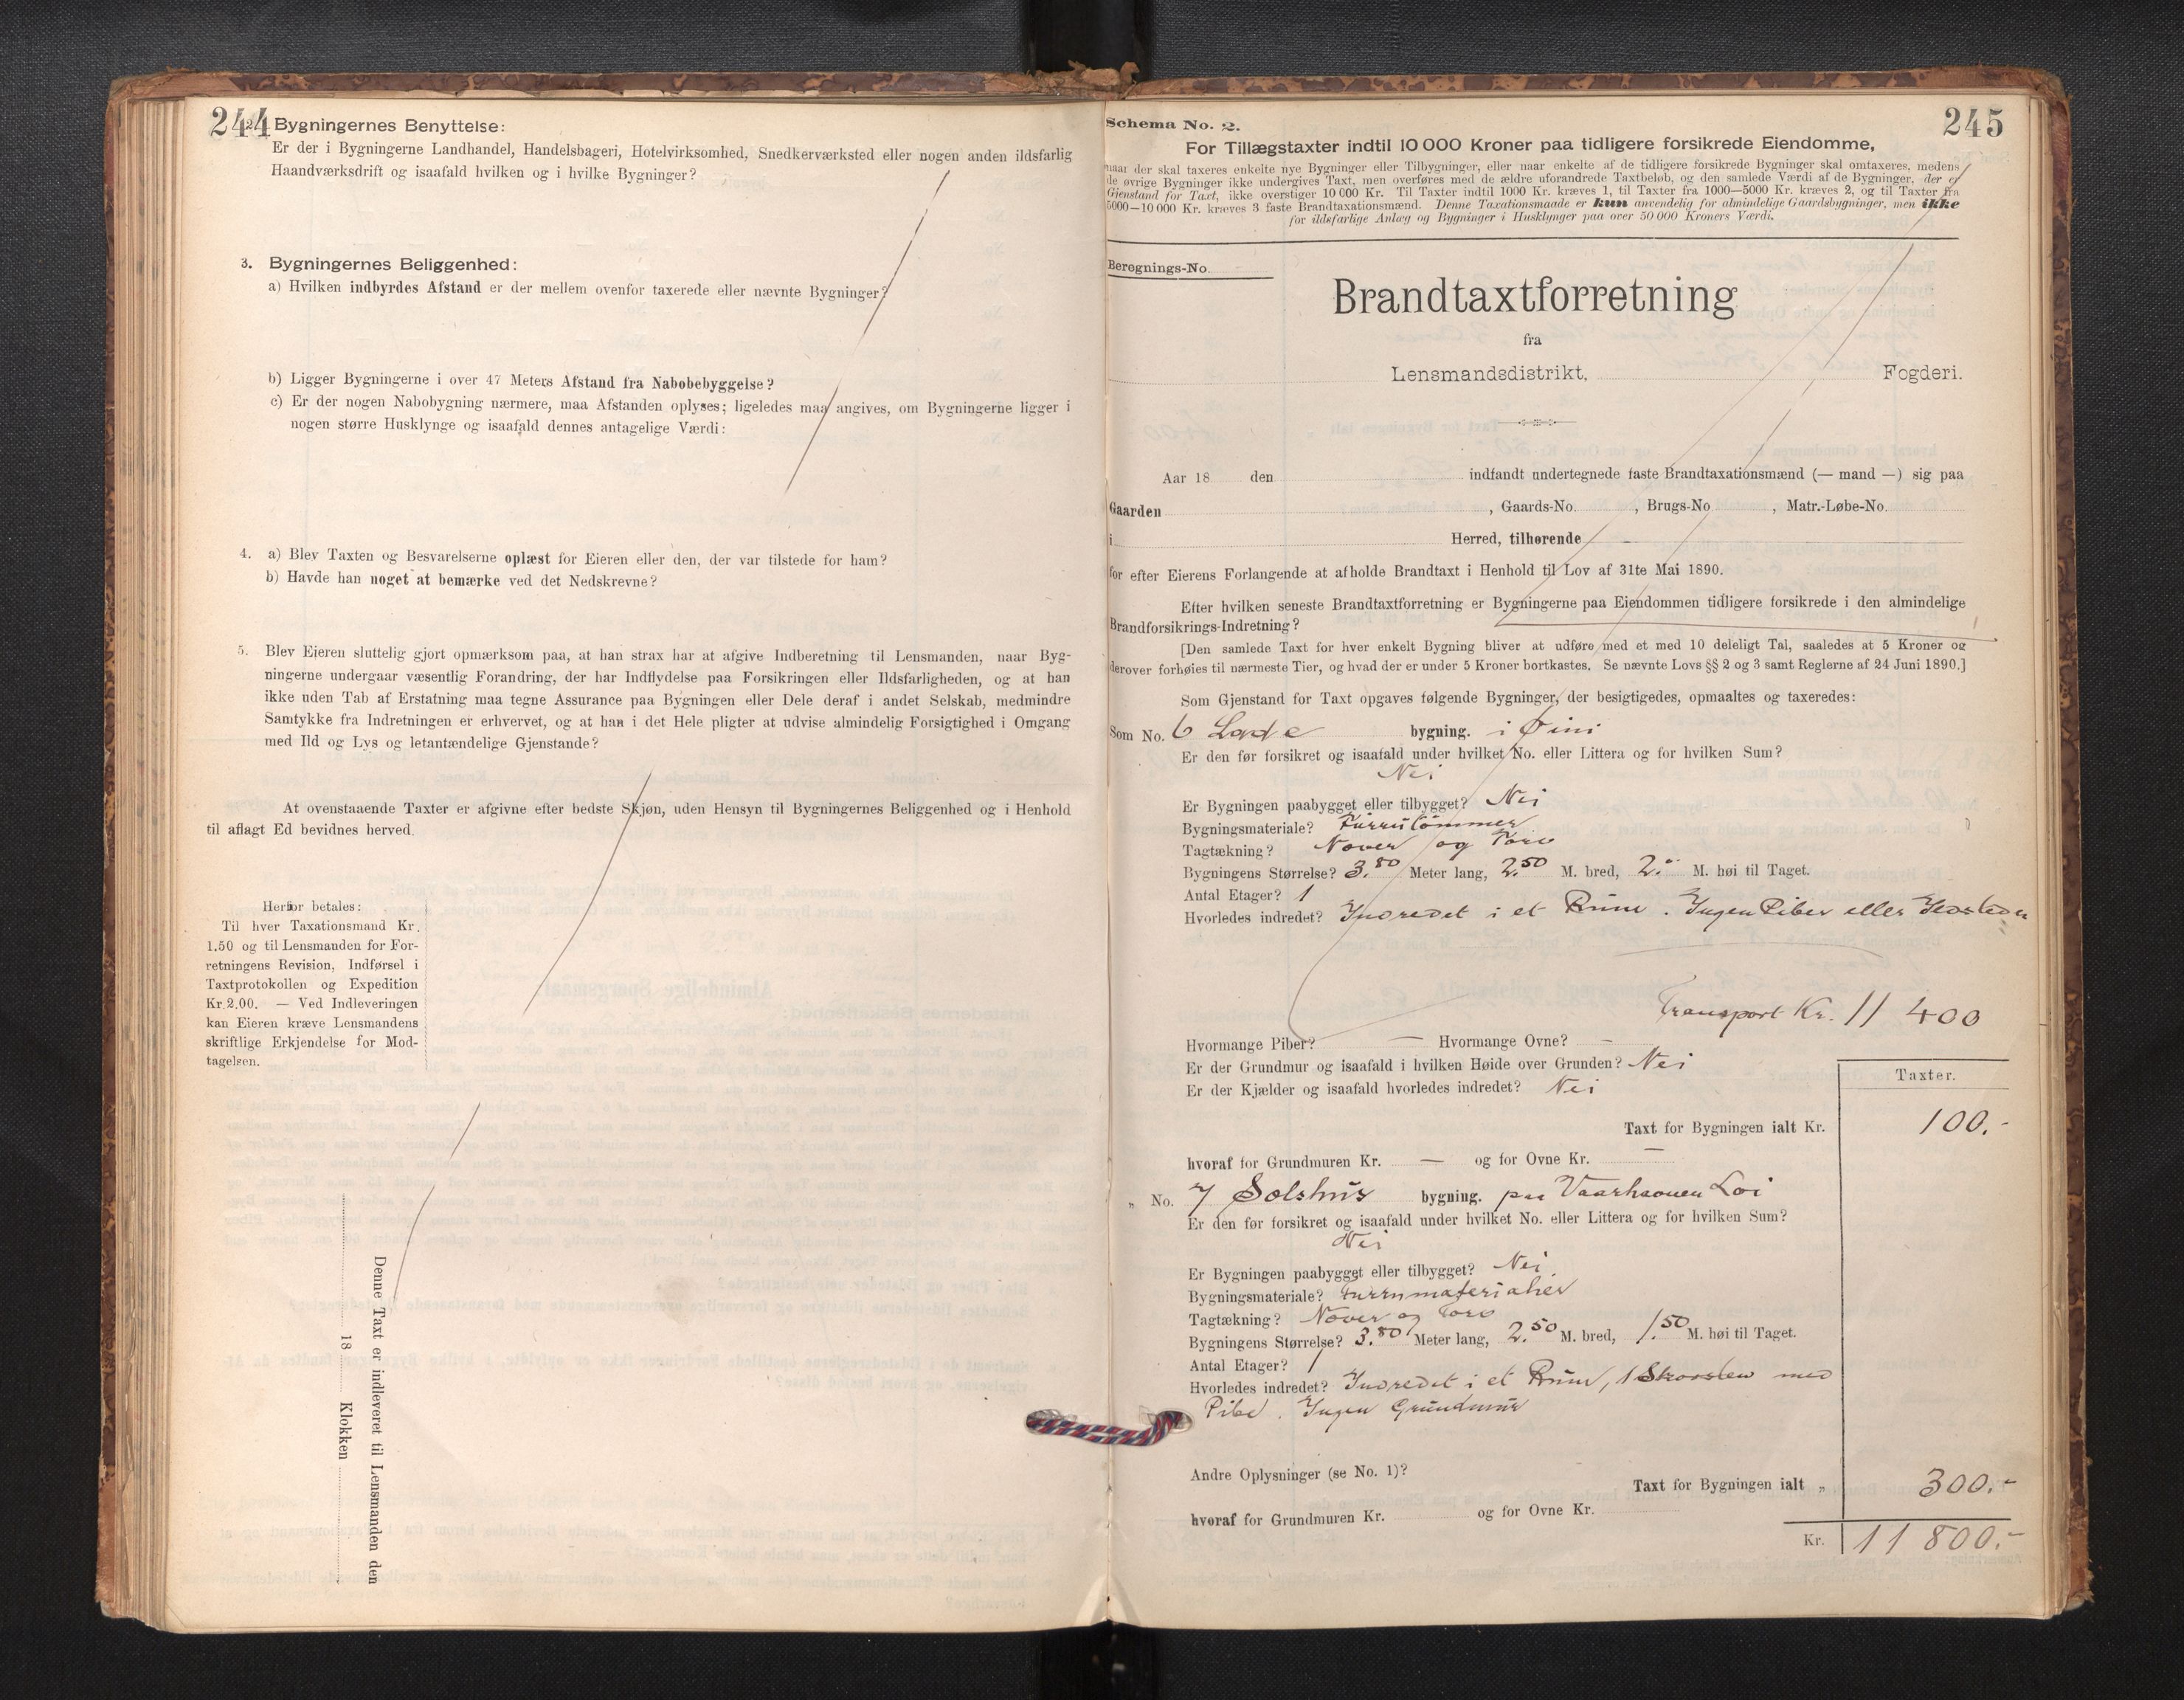 244
2. Bygningernes Benyttelse:
Er der i Bygningerne Landhandel, Handelsbageri, Hotelvirksomhed, Snedkerværksted eller nogen anden ildsfarlig
Haandværksdrift og isaafald hvilken og i hvilke Bygninger?
3. Bygningernes Beliggenhed:
a) Hvilken indbyrdes Afstand er der mellem ovenfor taxerede eller nævnte Bygninger?
b) Ligger Bygningerne i over 47 Meters Afstand fra Nabobebyggelse?
c) Er der nogen Nabobygning nærmere, maa Afstanden oplyses; ligeledes maa angives, om Bygningerne ligger i
nogen større Husklynge og isaafald dennes antagelige Værdi:
4. a) Blev Taxten og Besvarelserne oplæst for Eieren eller den, der var tilstede for ham?
b) Havde han noget at bemærke ved det Nedskrevne?
5. Blev Eieren sluttelig gjort opmærksom paa, at han strax har at afgive Indberetning til Lensmanden, naar Byg-
ningerne undergaar væsentlig Forandring, der har Indflydelse paa Forsikringen eller Ildsfarligheden, og at han
ikke uden Tab af Erstatning maa tegne Assurance paa Bygningen eller Dele deraf i andet Selskab, medmindre
Samtykke fra Indretningen er erhvervet, og at han i det Hele pligter at udvise almindelig Forsigtighed i Omgang
med Ild og Lys og letantændelige Gjenstande?
At ovenstaaende Taxter er afgivne efter bedste Skjøn, uden Hensyn til Bygningernes Beliggenhed og i Henhold
til aflagt Ed bevidnes herved.
Herfor betales:
Til hver Taxationsmand Kr.
1.50 og til Lensmanden for For-
retningens Revision, Indførsel i
Taxtprotokollen og Expedition
Kr. 2.00. — Ved Indleveringen
kan Eieren kræve Lensmandens
skriftlige Erkjendelse for Mod-
tagelsen.
Denne Taxt er indleveret til Lensmanden den
18 Klokken
245
Schema No. 2.
For Tillægstaxter indtil 10 000 Kroner paa tidligere forsikrede Eiendomme,
naar der skal taxeres enkelte nye Bygninger eller Tilbygninger, eller naar enkelte af de tidligere forsikrede Bygninger skal omtaxeres, medens
de øvrige Bygninger ikke undergives Taxt, men overføres med de ældre uforandrede Taxtbeløb, og den samlede Værdi af de Bygninger, der er
Gjenstand for Taxt, ikke overstiger 10 000 Kr. Til Taxter indtil 1000 Kr. kræves 1, til Taxter fra 1000—5000 Kr. kræves 2, og til Taxter fra
5000—10 000 Kr. kræves 3 faste Brandtaxationsmænd. Denne Taxationsmaade er kun anvendelig for almindelige Gaardsbygninger, men ikke
for ildsfarlige Anlæg og Bygninger i Husklynger paa over 50 000 Kroners Værdi.
Beregnings-No.
Brandtaxtforretning
fra
Lensmandsdistrikt, Fogderi.
Aar 18 den indfandt undertegnede faste Brandtaxationsmænd (— mand —) sig paa
Gaarden , Gaards-No. , Brugs-No , Matr.-Løbe-No.
i Herred, tilhørende
for efter Eierens Forlangende at afholde Brandtaxt i Henhold til Lov af 31te Mai 1890.
Efter hvilken seneste Brandtaxtforretning er Bygningerne paa Eiendommen tidligere forsikrede i den almindelige
Brandforsikrings-Indretning?
[Den samlede Taxt for hver enkelt Bygning bliver at udføre med et med 10 deleligt Tal, saaledes at 5 Kroner og
derover forhøies til nærmeste Tier, og hvad der er under 5 Kroner bortkastes. Se nævnte Lovs §§ 2 og 3 samt Reglerne af 24 Juni 1890.]
Som Gjenstand for Taxt opgaves følgende Bygninger, der besigtigedes, opmaaltes og taxeredes:
Som No. 6 Lade bygning. i Øini
Er den før forsikret og isaafald under hvilket No. eller Littera og for hvilken Sum?
Nei
Er Bygningen paabygget eller tilbygget? Nei
Bygningsmateriale? Furrutømmer
Tagtækning? Næver og Torv
Bygningens Størrelse? 3.80 Meter lang, 2.50 M. bred, 2." M. høi til Taget.
Antal Etager? 1
Hvorledes indredet? Indredet i et Rum. Ingen Piber eller Ildsteder
Transport Kr. 11 400
Hvormange Piber? — Hvormange Ovne? —
Er der Grundmur og isaafald i hvilken Høide over Grunden? Nei
Er der Kjælder og isaafald hvorledes indredet? Nei
Taxter.
Taxt for Bygningen ialt Kr. 100.-
hvoraf for Grundmuren Kr. — og for Ovne Kr. —
" No. 7 Sælshus bygning. paa Vaarhaouen Loi
Er den før forsikret og isaafald under hvilket No. eller Littera og for hvilken Sum?
Nei
Er Bygningen paabygget eller tilbygget? Nei
Bygningsmateriale? Furrumaterialier
Tagtækning? Næver og Torv
Bygningens Størrelse? 3.80 Meter lang, 2.50 M. bred, 1.50 M. høi til Taget.
Antal Etager? 1
Hvorledes indredet? Indredet i et Rum, 1 Skorsten med
Pibe. Ingen Grundmur
Andre Oplysninger (se No. 1)?
Taxt for Bygningen ialt " 300.-
hvoraf for Grundmuren Kr. og for Ovne Kr.
Kr. 11 800.-